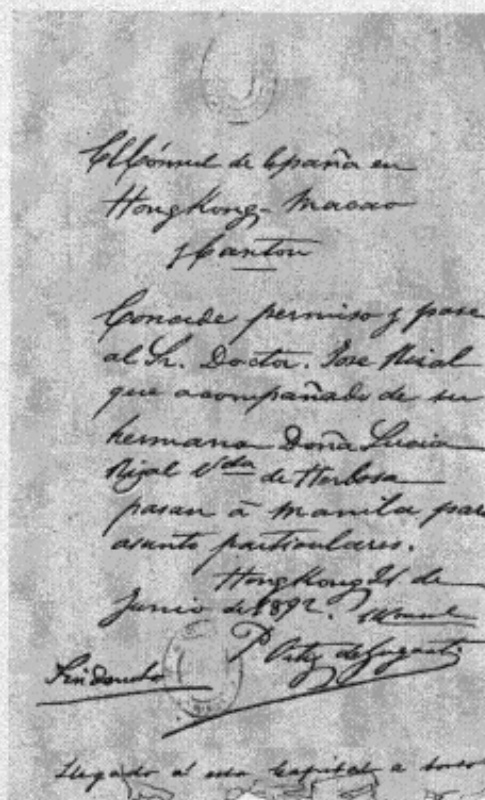 El Cónsul de España en
Hong Kong - Macao
y Canton
Concede permiso y pase
al Sr. Doctor. Jose Rizal
que acompañado de su
hermana Doña Lucia
Rizal Vda de Herbosa
pasan á Manila para
asuntos particulares.
Hong Kong 21 de
Junio de 1892.
P. Ortiz de Zugasti
Sin derecho
Llegado á esta Capital a